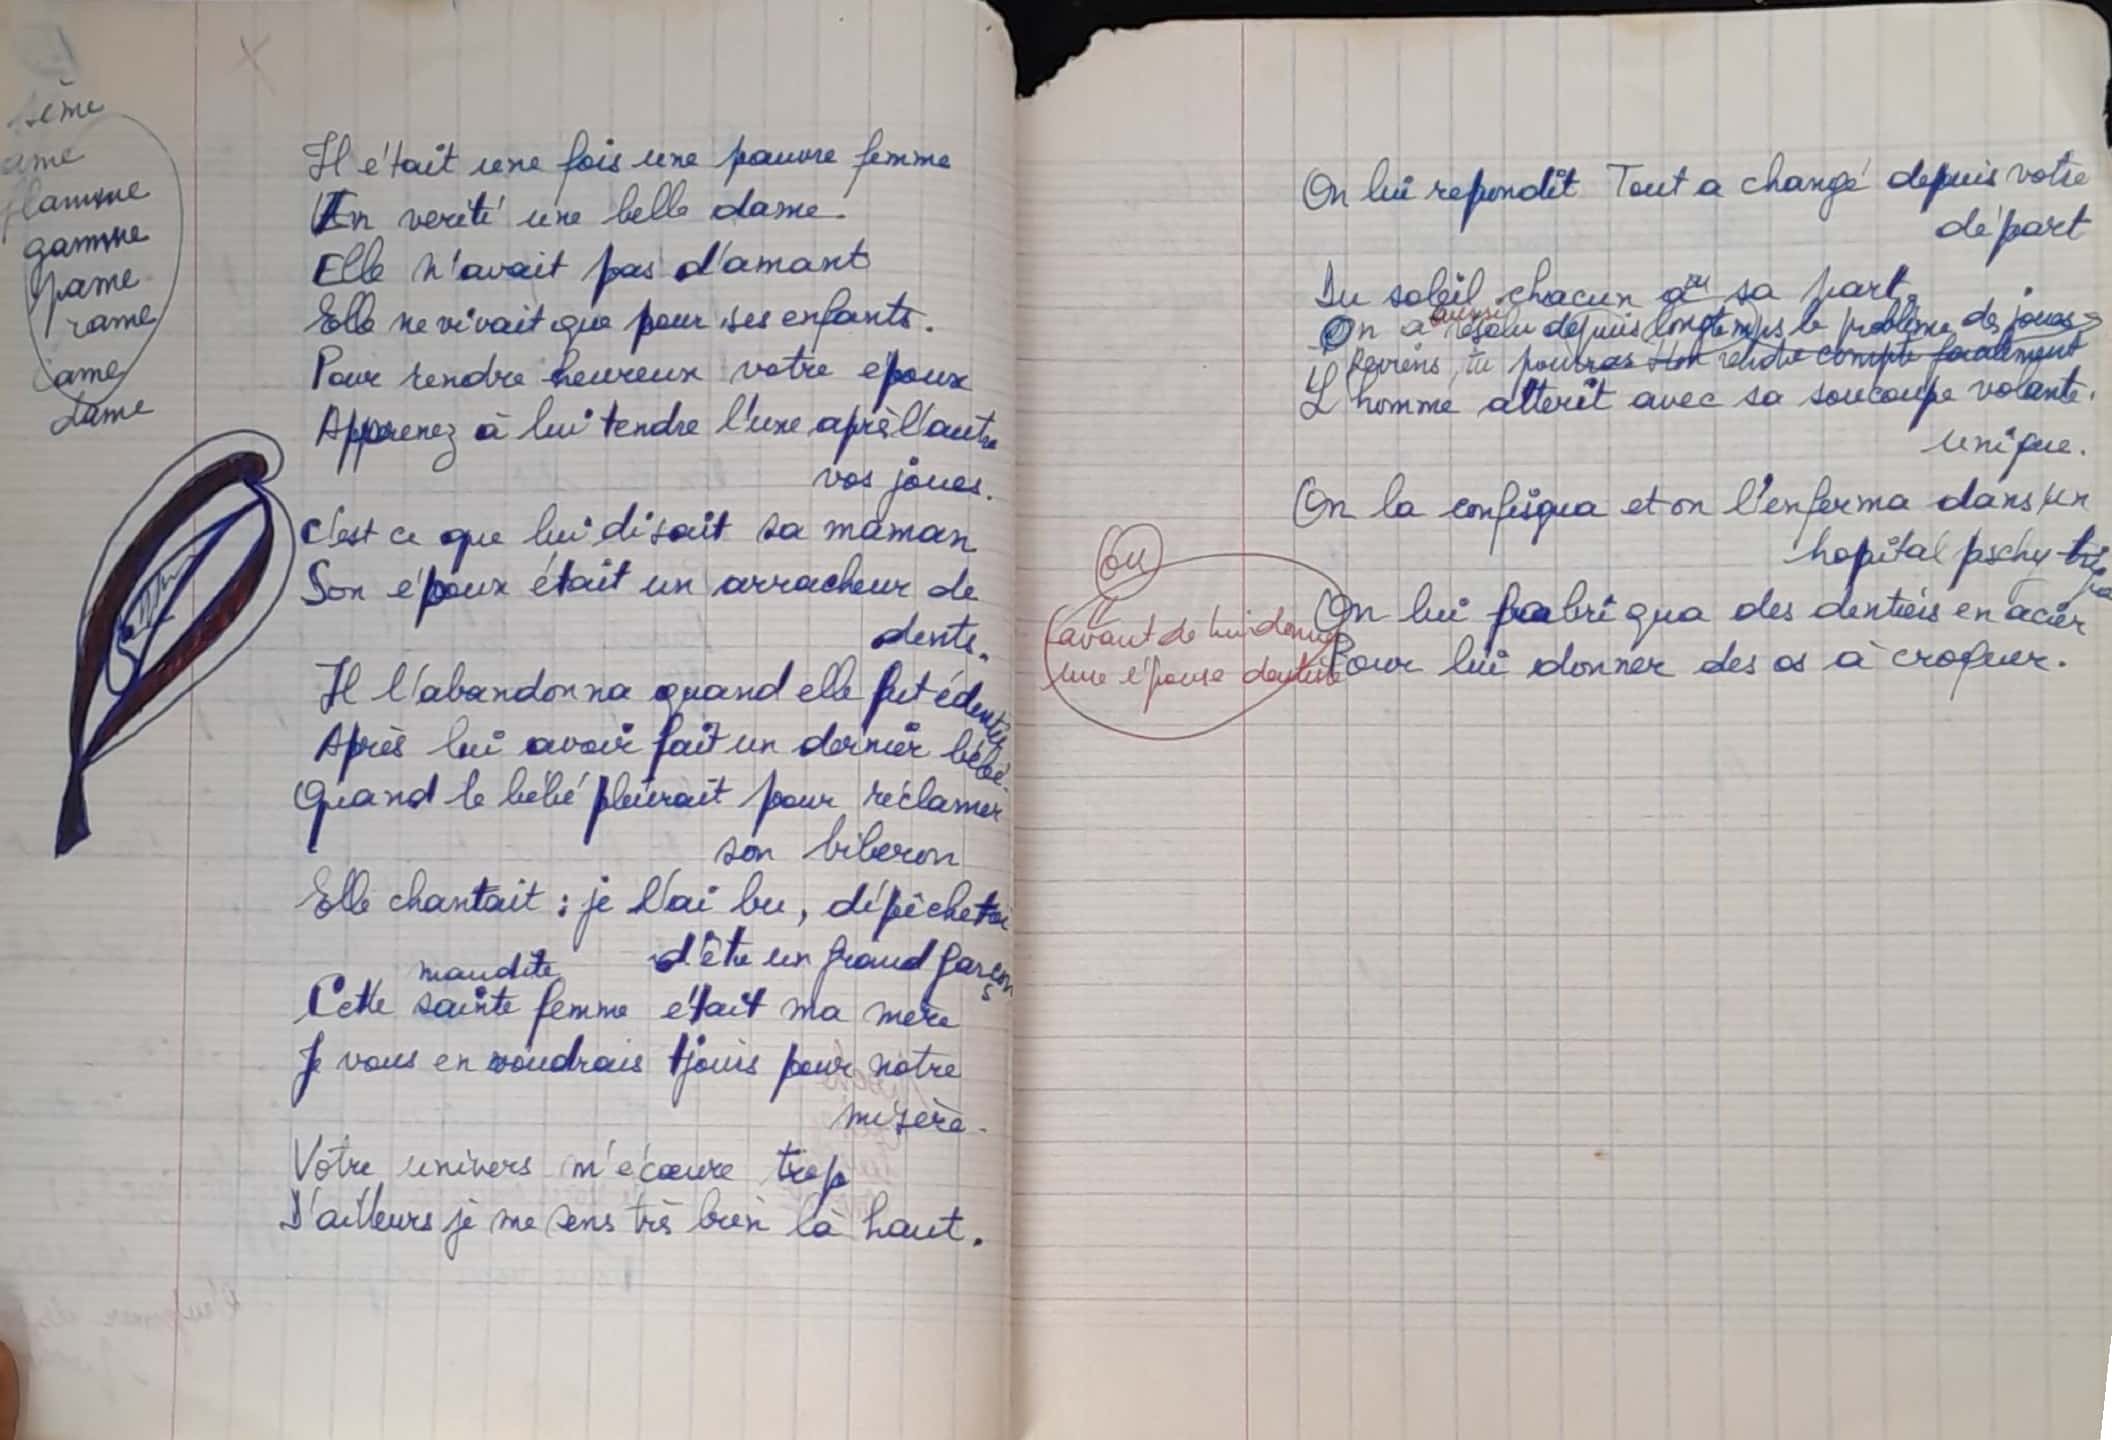 sème
ame
flamme
gamme
pame
rame
came
dame
Il était une fois une pauvre femme
En verité une belle dame.
Elle n'avait pas d'amant
Elle ne vivait que pour ses enfants.
Pour rendre heureux votre epoux
Apprenez à lui tendre l'une après l'autre
vos joues.
C'est ce que lui disait sa maman
Son époux était un arracheur de
dents.
Il l'abandonna quand elle fut édentée
Après lui avoir fait un dernier bébé.
Quand le bébé pleurait pour réclamer
son biberon
Elle chantait : je l'ai bu, dépêche toi
d'être un grand garçon
maudite
Cette sainte femme était ma mère
Je vous en voudrais tjours pour notre
misère.
Votre univers m'écœure trop
D'ailleurs je me sens très bien là haut.
On lui repondit Tout a changé depuis votre
départ
Du soleil chacun a eu sa part
On a aussi résolu depuis longtemps le problème des joues
Reviens, tu pourras t'en rendre compte facilement
L'homme atterit avec sa soucoupe volante.
unique.
On la confisqua et on l'enferma dans un
hopital pschy-trique
On lui fabriqua des dentiers en acier
Pour lui donner des os à croquer.
ou
avant de lui donner
une épouse dentiste